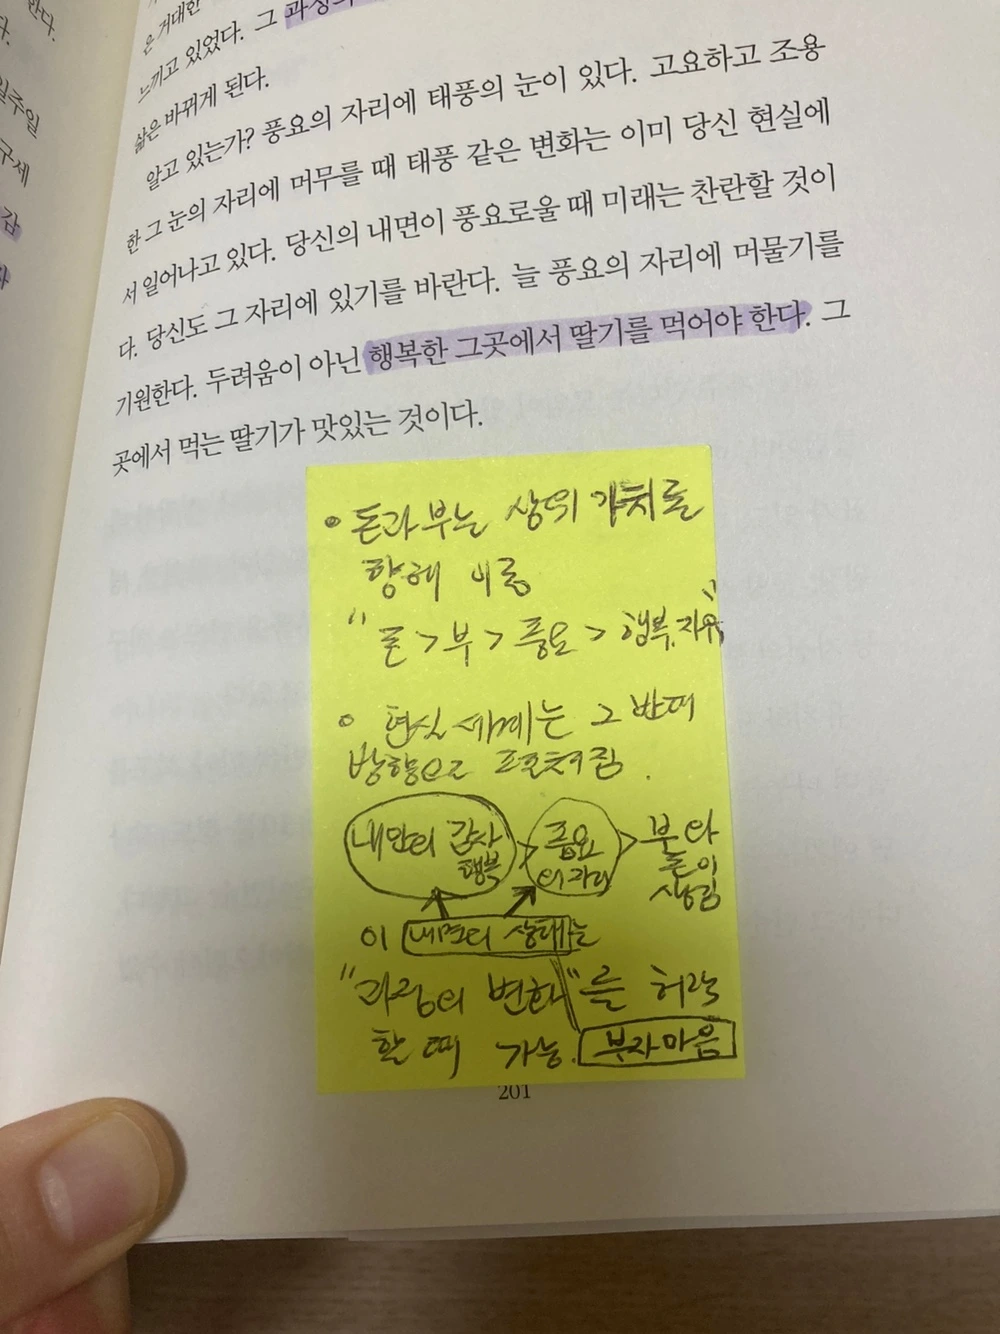 한다.
다.
일주일
구세
감
은 거대한
느끼고 있었다. 그 과정의
삶은 바뀌게 된다.
알고 있는가? 풍요의 자리에 태풍의 눈이 있다. 고요하고 조용
한 그 눈의 자리에 머무를 때 태풍 같은 변화는 이미 당신 현실에
서 일어나고 있다. 당신의 내면이 풍요로울 때 미래는 찬란할 것이
다. 당신도 그 자리에 있기를 바란다. 늘 풍요의 자리에 머물기를
기원한다. 두려움이 아닌 행복한 그곳에서 딸기를 먹어야 한다. 그
곳에서 먹는 딸기가 맛있는 것이다.
• 돈과 부는 상위 가치를
향해 이동
"돈 > 부 > 풍요 > 행복, 자유"
• 현실 세계는 그 반대
방향으로 펼쳐짐.
내면의 감사 행복 > 풍요의 자리 > 부와 돈이 생김
이 내면의 상태는
"과정의 변화"를 허락
할 때 가능. 부자마음
201